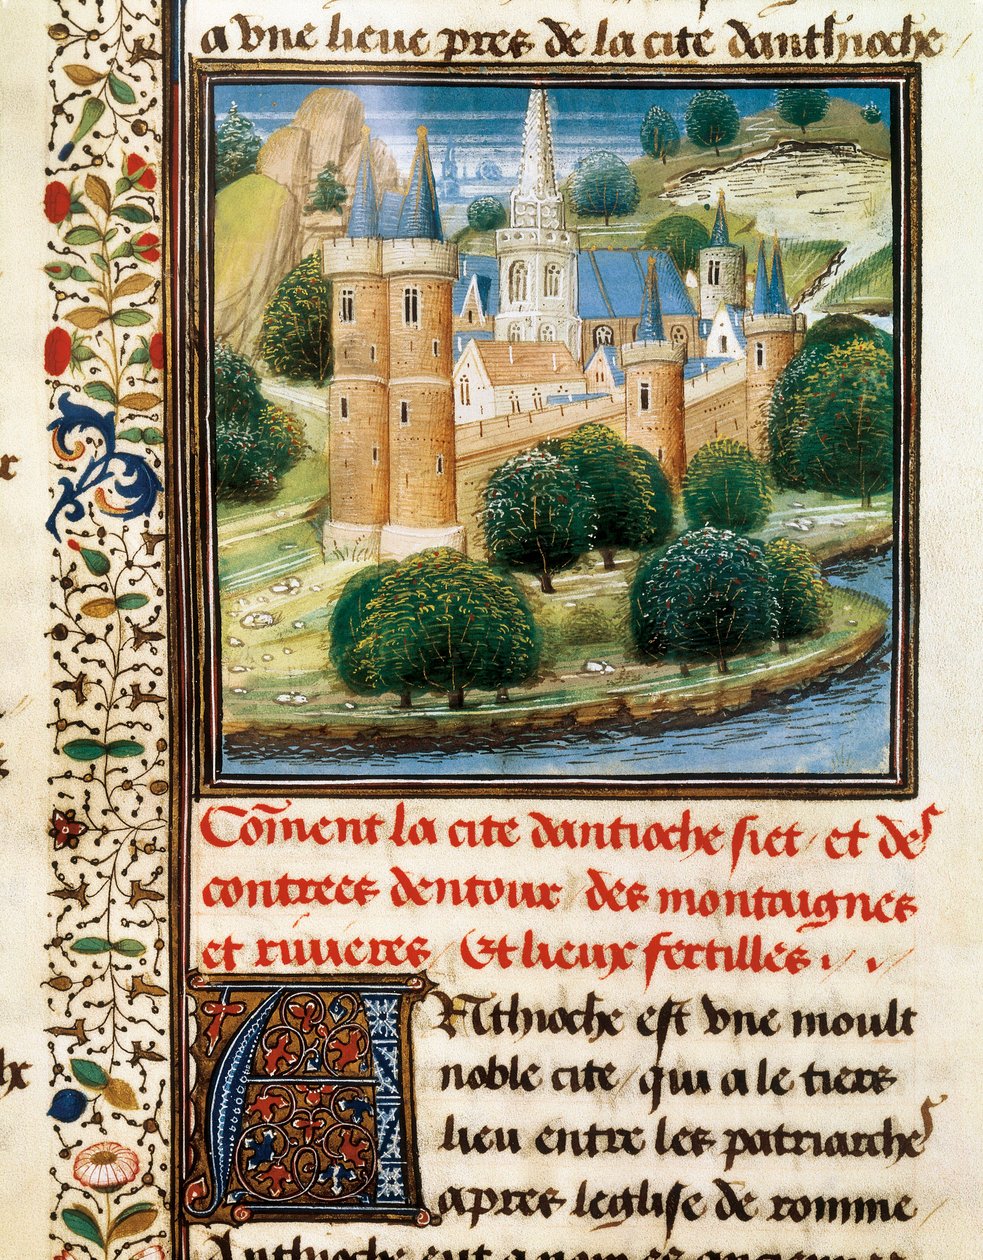 a vne lieue pres de la cite danthioche
Cõment la cite dantioche siet / et des
contrees dentour / des montaignes
et riuieres / Et lieux fertilles . / .
ANthioche est vne moult
noble cite / qui a le tiers
lieu entre les patriarches
apres leglise de romme
Anthioche eut a nom es